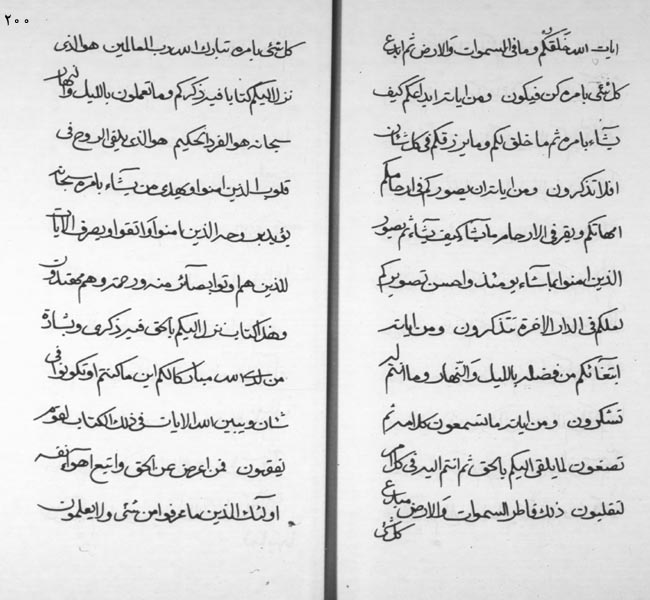 ايات الله خلقكم وما فى السموات والارض ثم ابدع
كل شئ بامره كن فيكون ومن اياته ابداعكم كيف
يشاء بامره ثم ما خلق لكم وما يرزقكم فى كل شان
افلا تذكرون ومن اياته ان يصوركم فى ارحام
امهاتكم ويقر فى الارحام ما يشا كيف يشاء ثم يصور
الذين امنوا بما شاء يومئذ واحسن تصويركم
لعلكم فى الدار الاخرة تتذكرون ومن اياته
ابتغائكم من فضله بالليل والنهار وما انتم له
تشكرون ومن اياته ما تسمعون كلامه ثم
تصغون لما يلقى اليكم بالحق ثم انتم اليه فى كلام
لتقلبون ذلك فاطر السموات والارض مبدع
كل شئ
٢٠٠
كل شئ بامره تبارك الله رب العالمين هو الذى
نزل اليكم كتابا فيه ذكركم وما تعملون بالليل والنهار
سبحانه هو الفرد الحكيم هو الذى يلقى الروح فى
قلوب الذين امنوا ويهدى من يشاء بامره سبحانه
يؤيد بروحه الذين امنوا واتقوا ويصرف الايات
للذين هم اوتوا بصائر منه ورحمة وهم مهتدون
وهذا كتاب نزل اليكم بالحق فيه ذكرى وبشارة
من لدى الله مبارك لكم اين ما كنتم او تكونوا فى
شان ويبين الله الايات فى ذلك الكتاب لقوم
يفقهون فمن اعرض عن الحق واتبع اهواء نفسه
اولئك الذين ما عرفوا من شئ ولا يعلمون